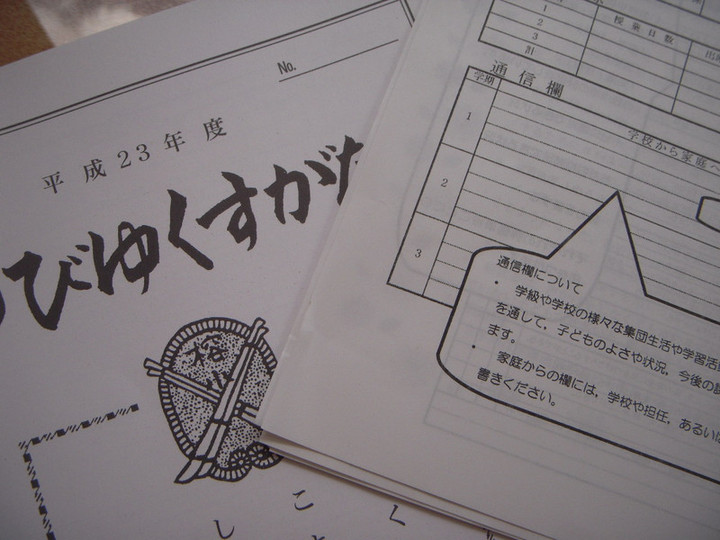 No.
平成23年度
びゆくすがた
く
こ
し
1
2
3
計
授業日数
通信欄
学期
学校から家庭へ
1
2
3
通信欄について
・ 学級や学校の様々な集団生活や学習活
を通して，子どものよさや状況，今後の
ます。
・ 家庭からの欄には，学校や担任，あるいは
書きください。